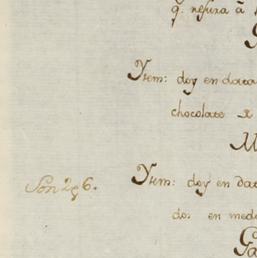 q.^e refura â
Ytem: doy en data
chocolate
M
Son 296.
Ytem: doy en dat
do: en med